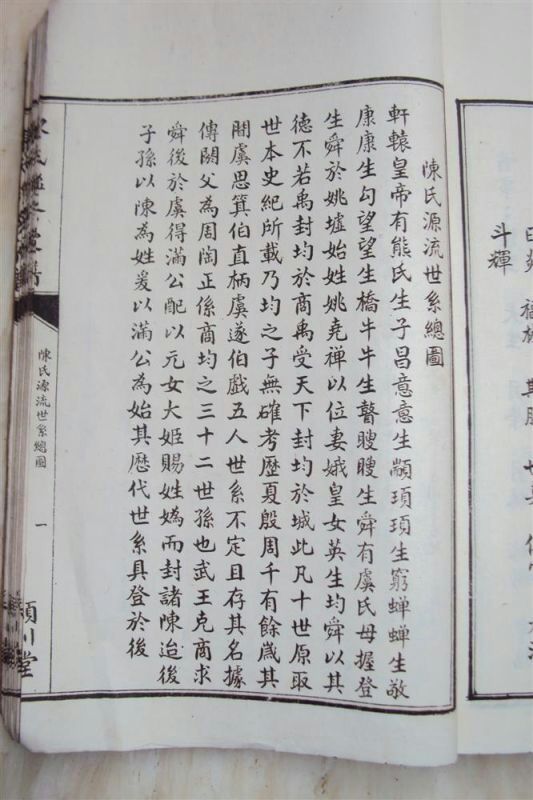 陳氏源流世系總圖
軒轅皇帝有熊氏生子昌意意生顓頊頊生窮蟬蟬生敬
康康生勾望望生橋牛牛生瞽瞍瞍生舜有虞氏母握登
生舜於姚墟始姓姚堯禪以位妻娥皇女英生均舜以其
德不若禹封均於商禹受天下封均於城此凡十世原取
世本史紀所載乃均之子無確考歷夏殷周千有餘歲其
間虞思箕伯直柄虞遂伯戲五人世系不定且存其名據
傳閼父為周陶正係商均之三十二世孫也武王克商求
舜後於虞得滿公配以元女大姬賜姓媯而封諸陳迨後
子孫以陳為姓爰以滿公為始其歷代世系具登於後
陳氏源流世系總圖
一
潁川堂
斗輝